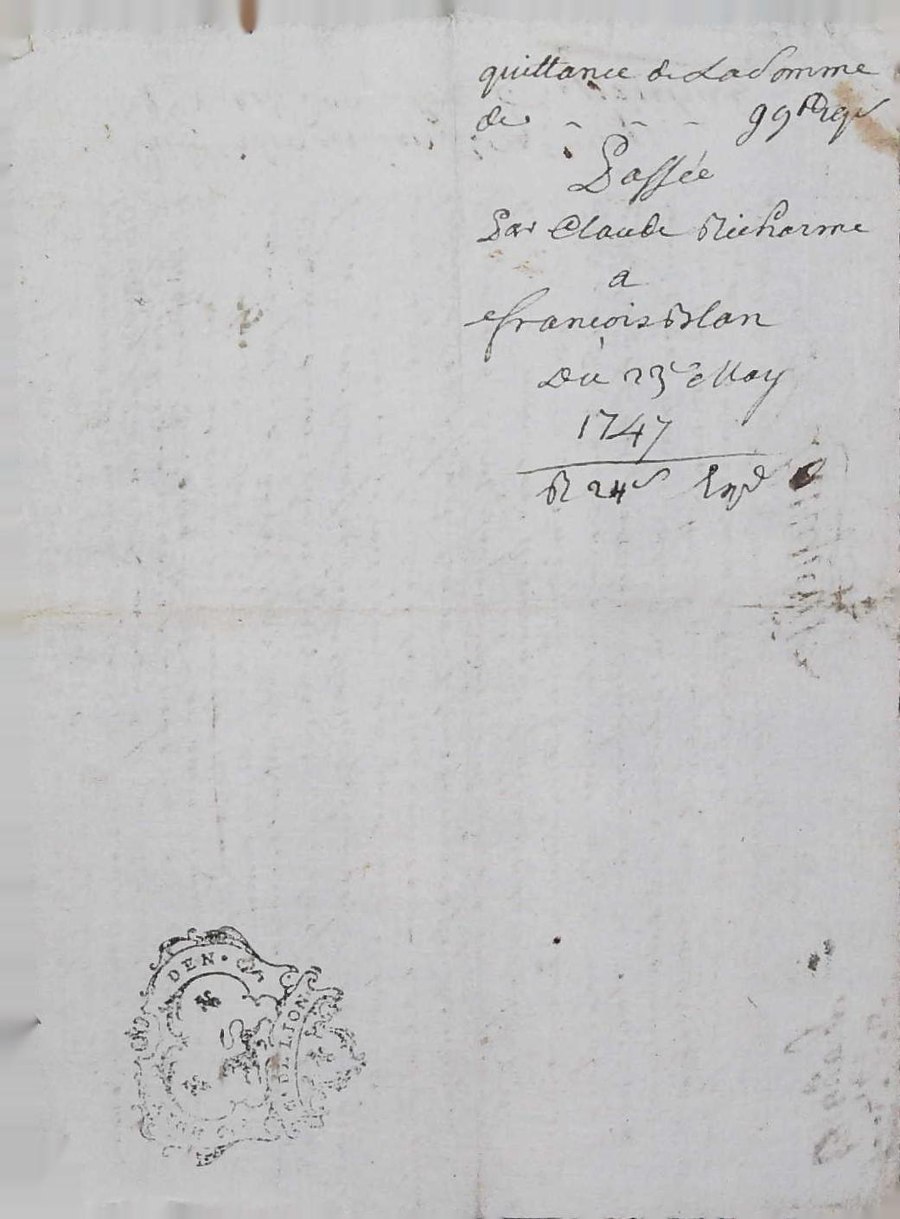 quittance de La Somme
de - - - 99
Passée
Par Claude Richarme
a
françois Blan
Du 23e May
1747
R 24s
DEN.
G. DE LION